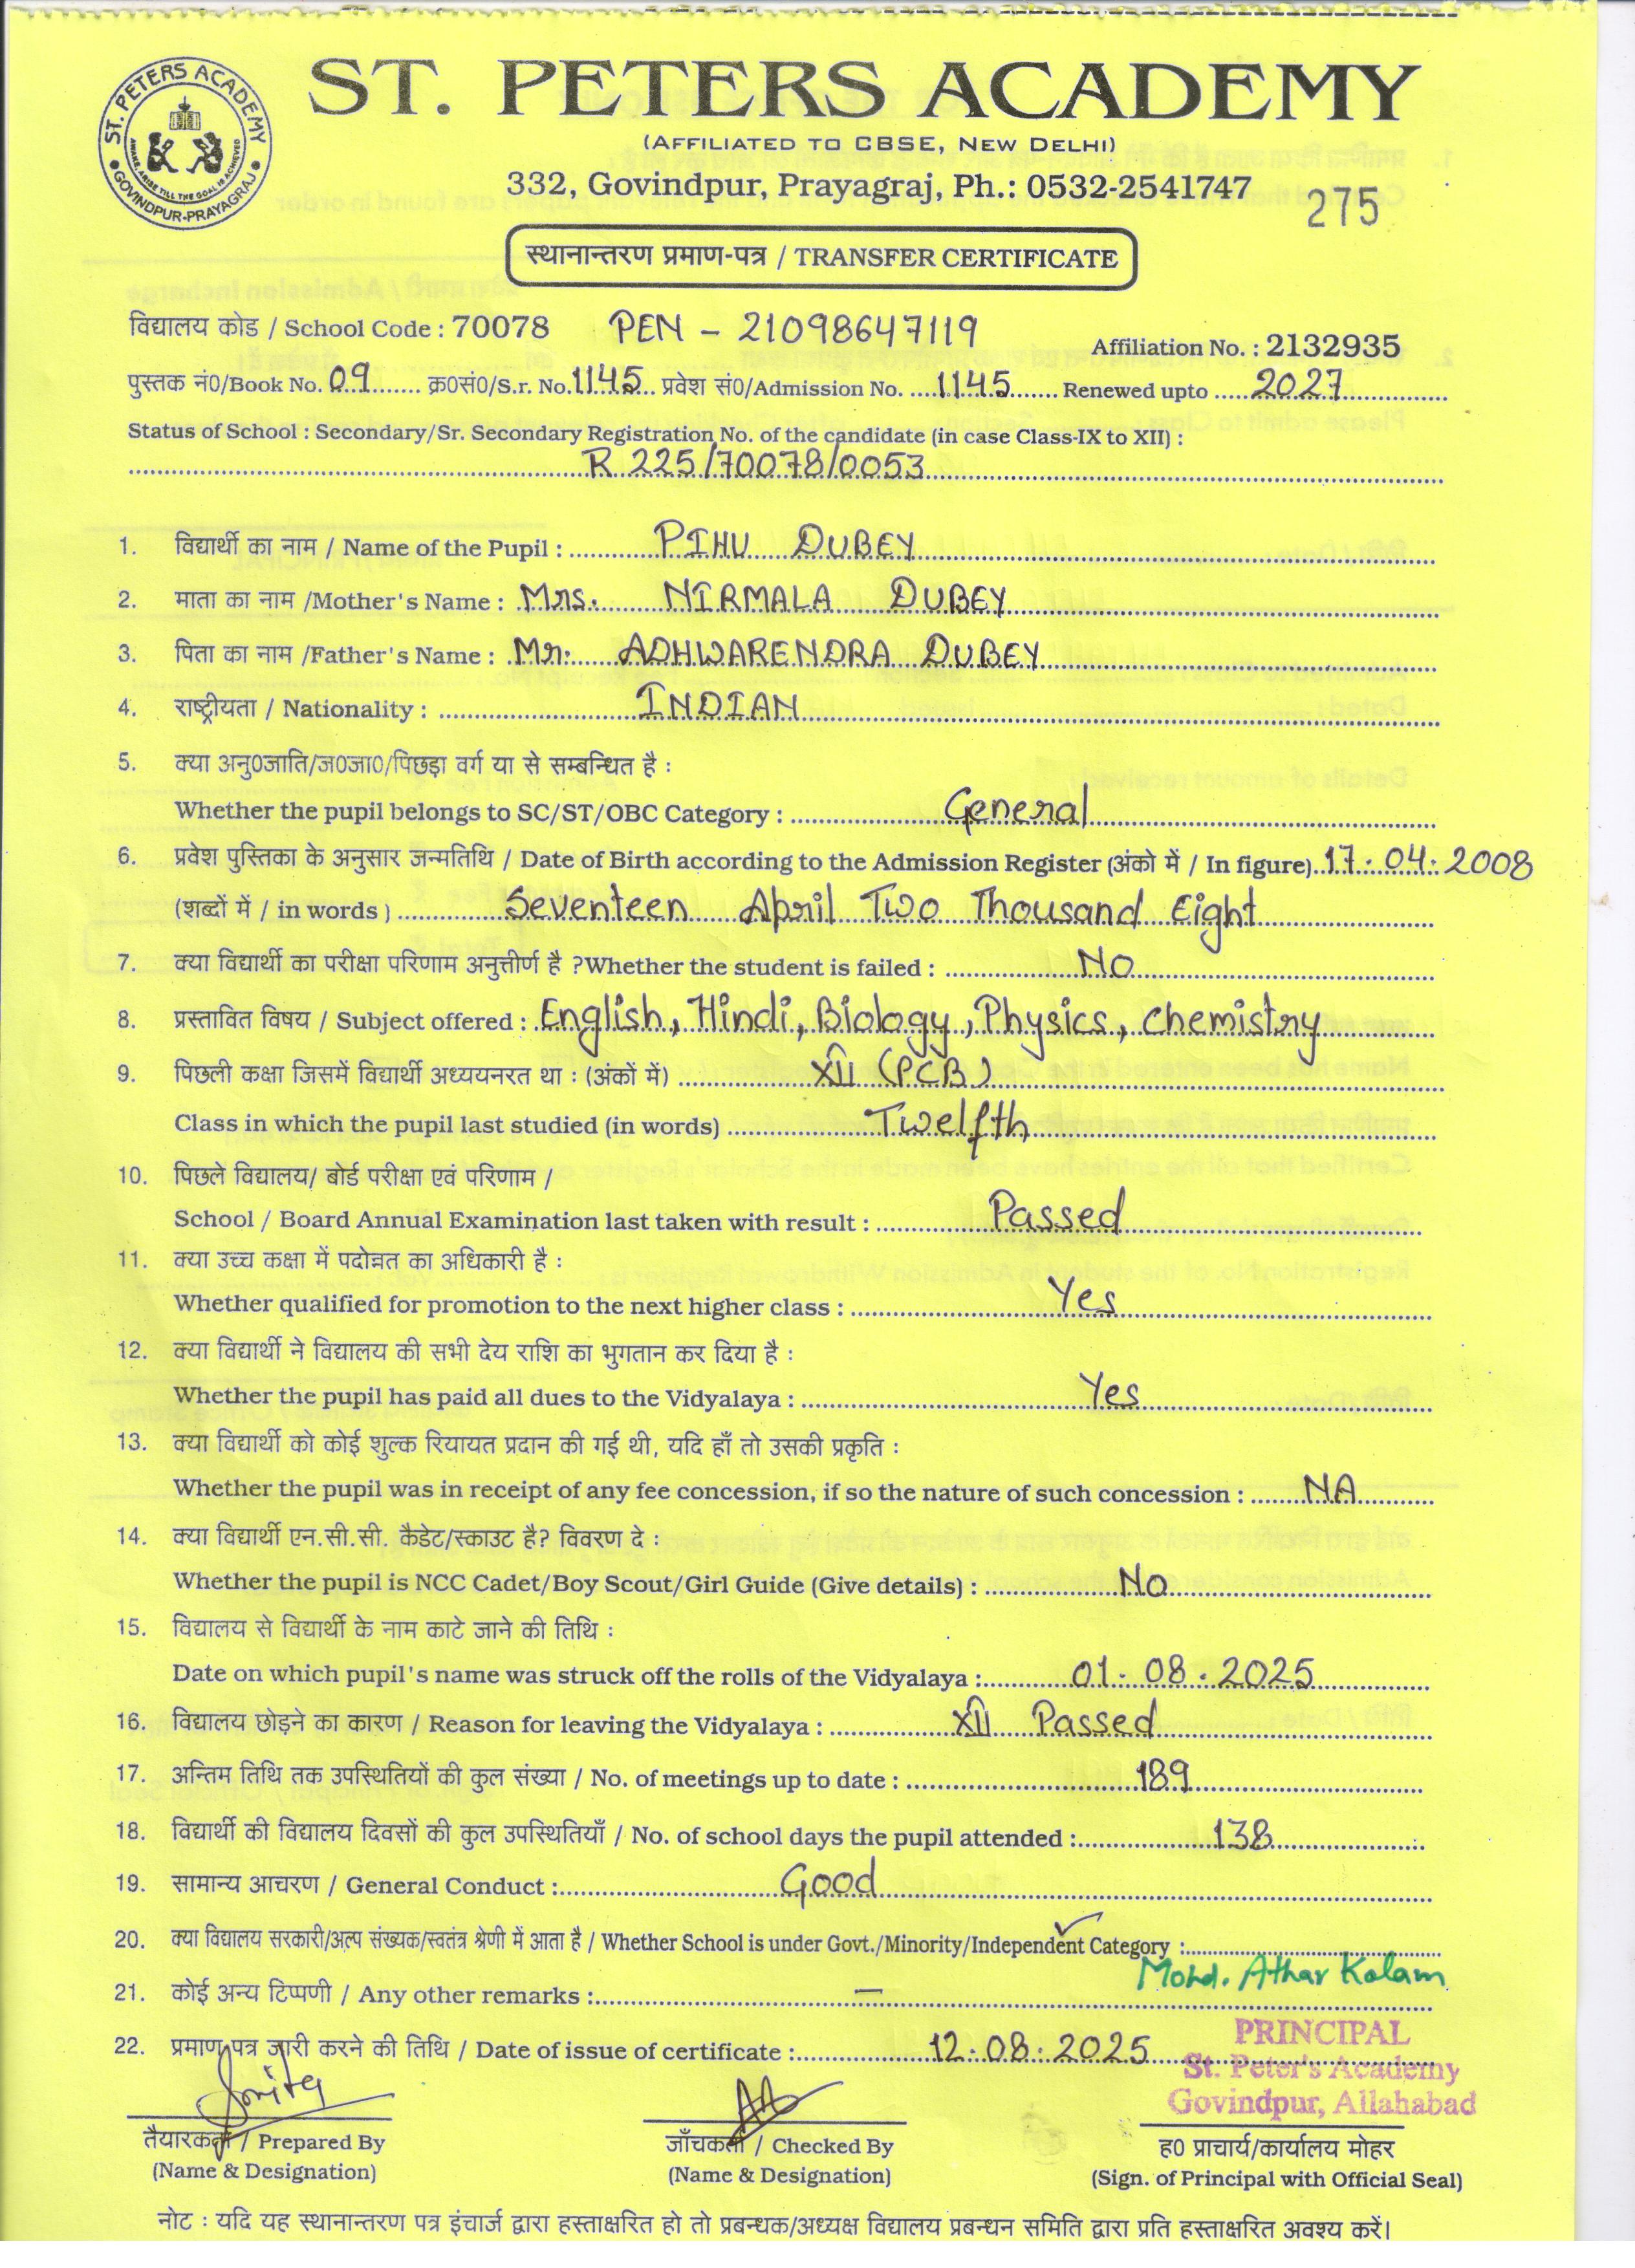 ST. PETERS ACADEMY
GOVINDPUR-PRAYAGRAJ
AWAKE, ARISE TILL THE GOAL IS ACHIEVED
ST. PETERS ACADEMY
(AFFILIATED TO CBSE, NEW DELHI)
332, Govindpur, Prayagraj, Ph.: 0532-2541747
275
स्थानान्तरण प्रमाण-पत्र / TRANSFER CERTIFICATE
विद्यालय कोड / School Code : 70078 PEN - 21098647119
Affiliation No. : 2132935
पुस्तक नं0/Book No. 09 क्र0सं0/S.r. No. 1145 प्रवेश सं0/Admission No. 1145 Renewed upto 2027
Status of School : Secondary/Sr. Secondary Registration No. of the candidate (in case Class-IX to XII) :
R 225/70078/0053
1. विद्यार्थी का नाम / Name of the Pupil : PIHU DUBEY
2. माता का नाम /Mother's Name : Mrs. NIRMALA DUBEY
3. पिता का नाम /Father's Name : Mr. ADHWARENDRA DUBEY
4. राष्ट्रीयता / Nationality : INDIAN
5. क्या अनु0जाति/ज0जा0/पिछड़ा वर्ग या से सम्बन्धित है :
Whether the pupil belongs to SC/ST/OBC Category : General
6. प्रवेश पुस्तिका के अनुसार जन्मतिथि / Date of Birth according to the Admission Register (अंको में / In figure) 17.04.2008
(शब्दों में / in words ) Seventeen April Two Thousand Eight
7. क्या विद्यार्थी का परीक्षा परिणाम अनुत्तीर्ण है ?Whether the student is failed : No
8. प्रस्तावित विषय / Subject offered : English, Hindi, Biology, Physics, Chemistry
9. पिछली कक्षा जिसमें विद्यार्थी अध्ययनरत था : (अंकों में) XII (PCB)
Class in which the pupil last studied (in words) Twelfth
10. पिछले विद्यालय/ बोर्ड परीक्षा एवं परिणाम /
School / Board Annual Examination last taken with result : Passed
11. क्या उच्च कक्षा में पदोन्नत का अधिकारी है :
Whether qualified for promotion to the next higher class : Yes
12. क्या विद्यार्थी ने विद्यालय की सभी देय राशि का भुगतान कर दिया है :
Whether the pupil has paid all dues to the Vidyalaya : Yes
13. क्या विद्यार्थी को कोई शुल्क रियायत प्रदान की गई थी, यदि हाँ तो उसकी प्रकृति :
Whether the pupil was in receipt of any fee concession, if so the nature of such concession : NA
14. क्या विद्यार्थी एन.सी.सी. कैडेट/स्काउट है? विवरण दे :
Whether the pupil is NCC Cadet/Boy Scout/Girl Guide (Give details) : No
15. विद्यालय से विद्यार्थी के नाम काटे जाने की तिथि :
Date on which pupil's name was struck off the rolls of the Vidyalaya : 01.08.2025
16. विद्यालय छोड़ने का कारण / Reason for leaving the Vidyalaya : XII Passed
17. अन्तिम तिथि तक उपस्थितियों की कुल संख्या / No. of meetings up to date : 189
18. विद्यार्थी की विद्यालय दिवसों की कुल उपस्थितियाँ / No. of school days the pupil attended : 138
19. सामान्य आचरण / General Conduct : Good
20. क्या विद्यालय सरकारी/अल्प संख्यक/स्वतंत्र श्रेणी में आता है / Whether School is under Govt./Minority/Independent Category :
Mohd. Athar Kalam
21. कोई अन्य टिप्पणी / Any other remarks : —
22. प्रमाण-पत्र जारी करने की तिथि / Date of issue of certificate : 12.08.2025
PRINCIPAL
St. Peter's Academy
Govindpur, Allahabad
तैयारकर्ता / Prepared By
(Name & Designation)
जाँचकर्ता / Checked By
(Name & Designation)
ह0 प्राचार्य/कार्यालय मोहर
(Sign. of Principal with Official Seal)
नोट : यदि यह स्थानान्तरण पत्र इंचार्ज द्वारा हस्ताक्षरित हो तो प्रबन्धक/अध्यक्ष विद्यालय प्रबन्धन समिति द्वारा प्रति हस्ताक्षरित अवश्य करें।